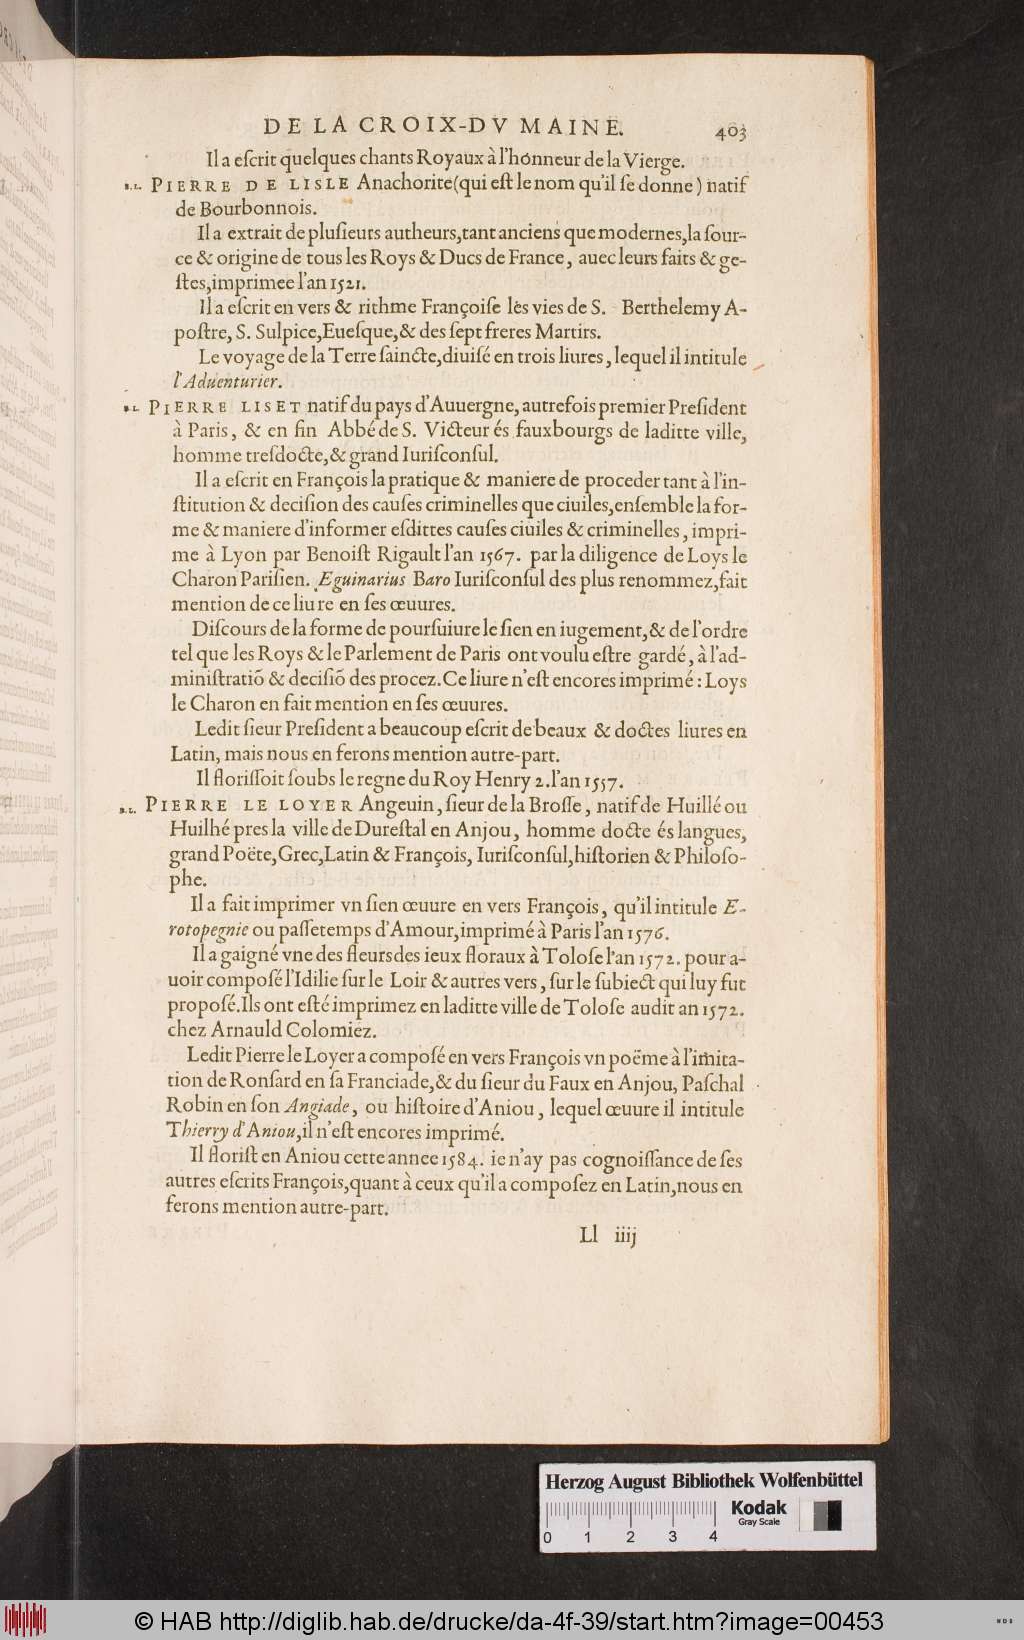 DE LA CROIX-DV MAINE. 403
Il a eſcrit quelques chants Royaux à l'honneur de la Vierge.
B.L. PIERRE DE LISLE Anachorite (qui eſt le nom qu'il ſe donne) natif
de Bourbonnois.
Il a extrait de pluſieurs autheurs, tant anciens que modernes, la ſour-
ce & origine de tous les Roys & Ducs de France, auec leurs faits & ge-
ſtes, imprimee l'an 1521.
Il a eſcrit en vers & rithme Françoiſe les vies de S. Berthelemy A-
poſtre, S. Sulpice, Eueſque, & des ſept freres Martirs.
Le voyage de la Terre ſaincte, diuiſé en trois liures, lequel il intitule
l'Aduenturier.
B.L. PIERRE LISET natif du pays d'Auuergne, autrefois premier Preſident
à Paris, & en fin Abbé de S. Victeur és fauxbourgs de laditte ville,
homme treſdocte, & grand Iuriſconſul.
Il a eſcrit en François la pratique & maniere de proceder tant à l'in-
ſtitution & deciſion des cauſes criminelles que ciuiles, enſemble la for-
me & maniere d'informer eſdittes cauſes ciuiles & criminelles, impri-
me à Lyon par Benoiſt Rigault l'an 1567. par la diligence de Loys le
Charon Pariſien. Eguinarius Baro Iuriſconſul des plus renommez, fait
mention de ce liure en ſes œuures.
Diſcours de la forme de pourſuiure le ſien en iugement, & de l'ordre
tel que les Roys & le Parlement de Paris ont voulu eſtre gardé, à l'ad-
miniſtratiõ & deciſiõ des procez. Ce liure n'eſt encores imprimé: Loys
le Charon en fait mention en ſes œuures.
Ledit ſieur Preſident a beaucoup eſcrit de beaux & doctes liures en
Latin, mais nous en ferons mention autre-part.
Il floriſſoit ſoubs le regne du Roy Henry 2. l'an 1557.
B.L. PIERRE LE LOYER Angeuin, ſieur de la Broſſe, natif de Huillé ou
Huilhé pres la ville de Dureſtal en Anjou, homme docte és langues,
grand Poëte, Grec, Latin & François, Iuriſconſul, hiſtorien & Philoſo-
phe.
Il a fait imprimer vn ſien œuure en vers François, qu'il intitule E-
rotopegnie ou paſſetemps d'Amour, imprimé à Paris l'an 1576.
Il a gaigné vne des fleurs des ieux floraux à Toloſe l'an 1572. pour a-
uoir compoſé l'Idilie ſur le Loir & autres vers, ſur le ſubiect qui luy fut
propoſé. Ils ont eſté imprimez en laditte ville de Toloſe audit an 1572.
chez Arnauld Colomiez.
Ledit Pierre le Loyer a compoſé en vers François vn poëme à l'imita-
tion de Ronſard en ſa Franciade, & du ſieur du Faux en Anjou, Paſchal
Robin en ſon Angiade, ou hiſtoire d'Aniou, lequel œuure il intitule
Thierry d'Aniou, il n'eſt encores imprimé.
Il floriſt en Aniou cette annee 1584. ie n'ay pas cognoiſſance de ſes
autres eſcrits François, quant à ceux qu'il a compoſez en Latin, nous en
ferons mention autre-part.
Ll iiij
Herzog August Bibliothek Wolfenbüttel
Kodak
Gray Scale
0 1 2 3 4
© HAB http://diglib.hab.de/drucke/da-4f-39/start.htm?image=00453